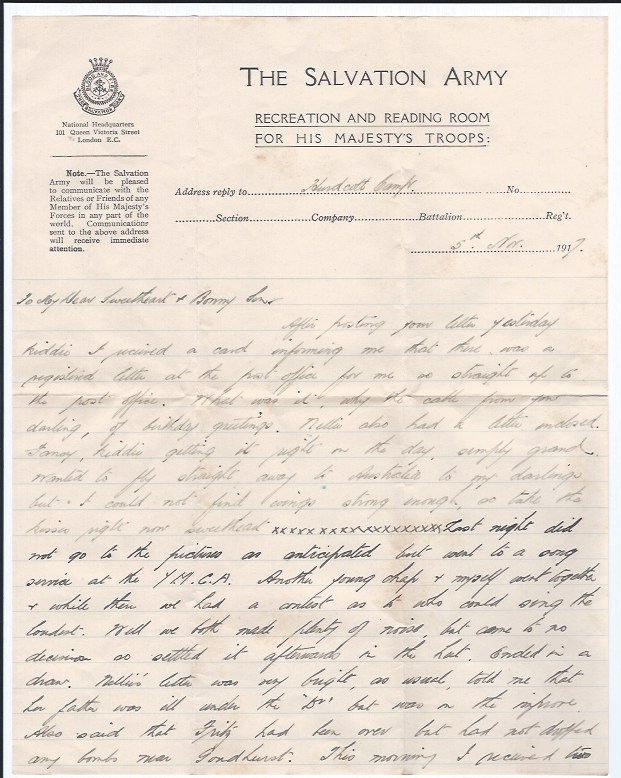 THE SALVATION ARMY
RECREATION AND READING ROOM
FOR HIS MAJESTY'S TROOPS:
BLOOD AND FIRE
THE SALVATION ARMY
National Headquarters
101 Queen Victoria Street
London E.C.
Note.—The Salvation
Army will be pleased
to communicate with the
Relatives or Friends of any
Member of His Majesty's
Forces in any part of the
world. Communications
sent to the above address
will receive immediate
attention.
Address reply to Hurdcott Camp. No.
Section Company Battalion Reg't.
5th Nov. 1917.
To My Dear Sweetheart & Bonny Son.
After posting your letter yesterday
Kiddie I received a card informing me that there was a
registered letter at the post office for me so straight up to
the post office. What was it, why the cable from you
darling, of birthday greetings. Nellie also had a letter enclosed.
Fancy Kiddie getting it right on the day, simply grand.
Wanted to fly straight away to Australia to my darlings
but I could not find wings strong enough, so take the
kisses right now sweetheart xxxxxxxxxxxxxxxxx Last night did
not go to the pictures as anticipated but went to a song
service at the Y.M.C.A. Another young chap & myself went together
& while there we had a contest as to who could sing the
loudest. Well we both made plenty of noise, but came to no
decision so settled it afterwards in the hut. Ended in a
draw. Nellie's letter was very bright, as usual, told me that
her father was ill under the "Dr" but was on the improve.
Also said that Fritz had been over but had not dropped
any bombs near Goudhurst. This morning I received two